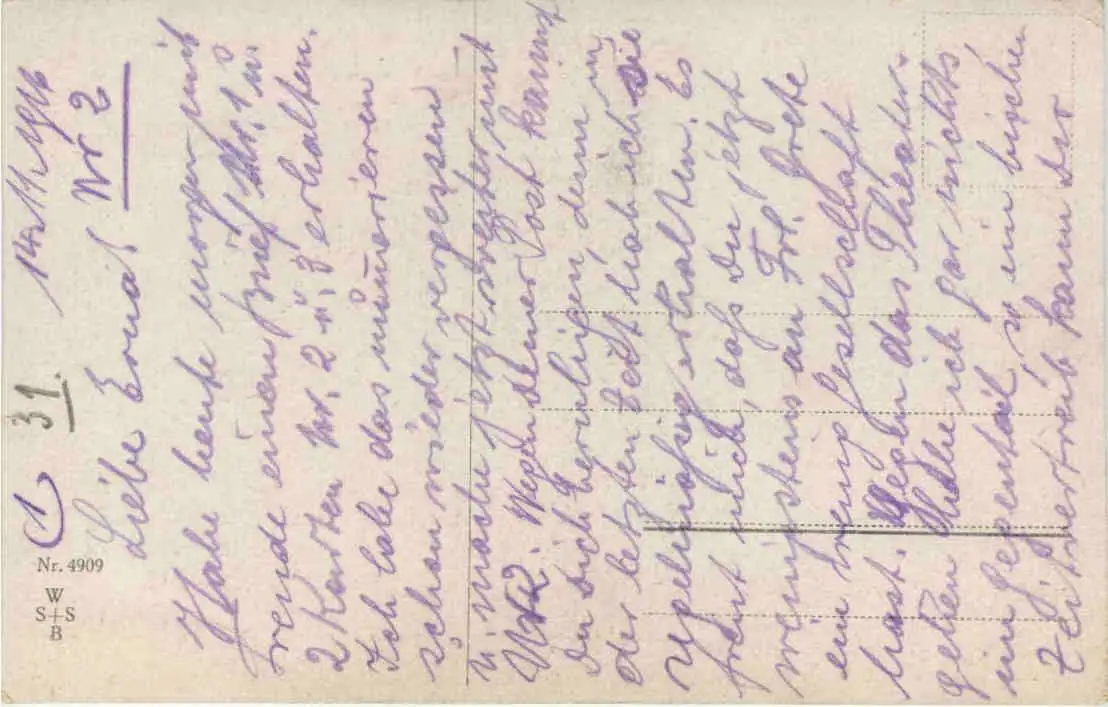 ① 31. 14.11.1916
Liebe Erna! Nr 2
Habe heute morgen mit
freude einen Brief Nr. 1 u.
2 Karten Nr. 2 u. 3 erhalten.
Ich habe das numerieren
schon wieder vergessen
u. mache jetzt weiter mit
Nr 2. Wegen deiner Post kannst
du dich beruhigen denn in
der letzten Zeit hab ich sie
regelmäßig erhalten. Es
freut mich, dass Du jetzt
wenigstens an Frl. Grete
ein wenig Gesellschaft
hast. Wegen das Theater
gehen habe ich gar nichts
im Gegenteil, so ein bischen
Zeitvertreib kann Dir
Nr. 4909
W
S+S
B